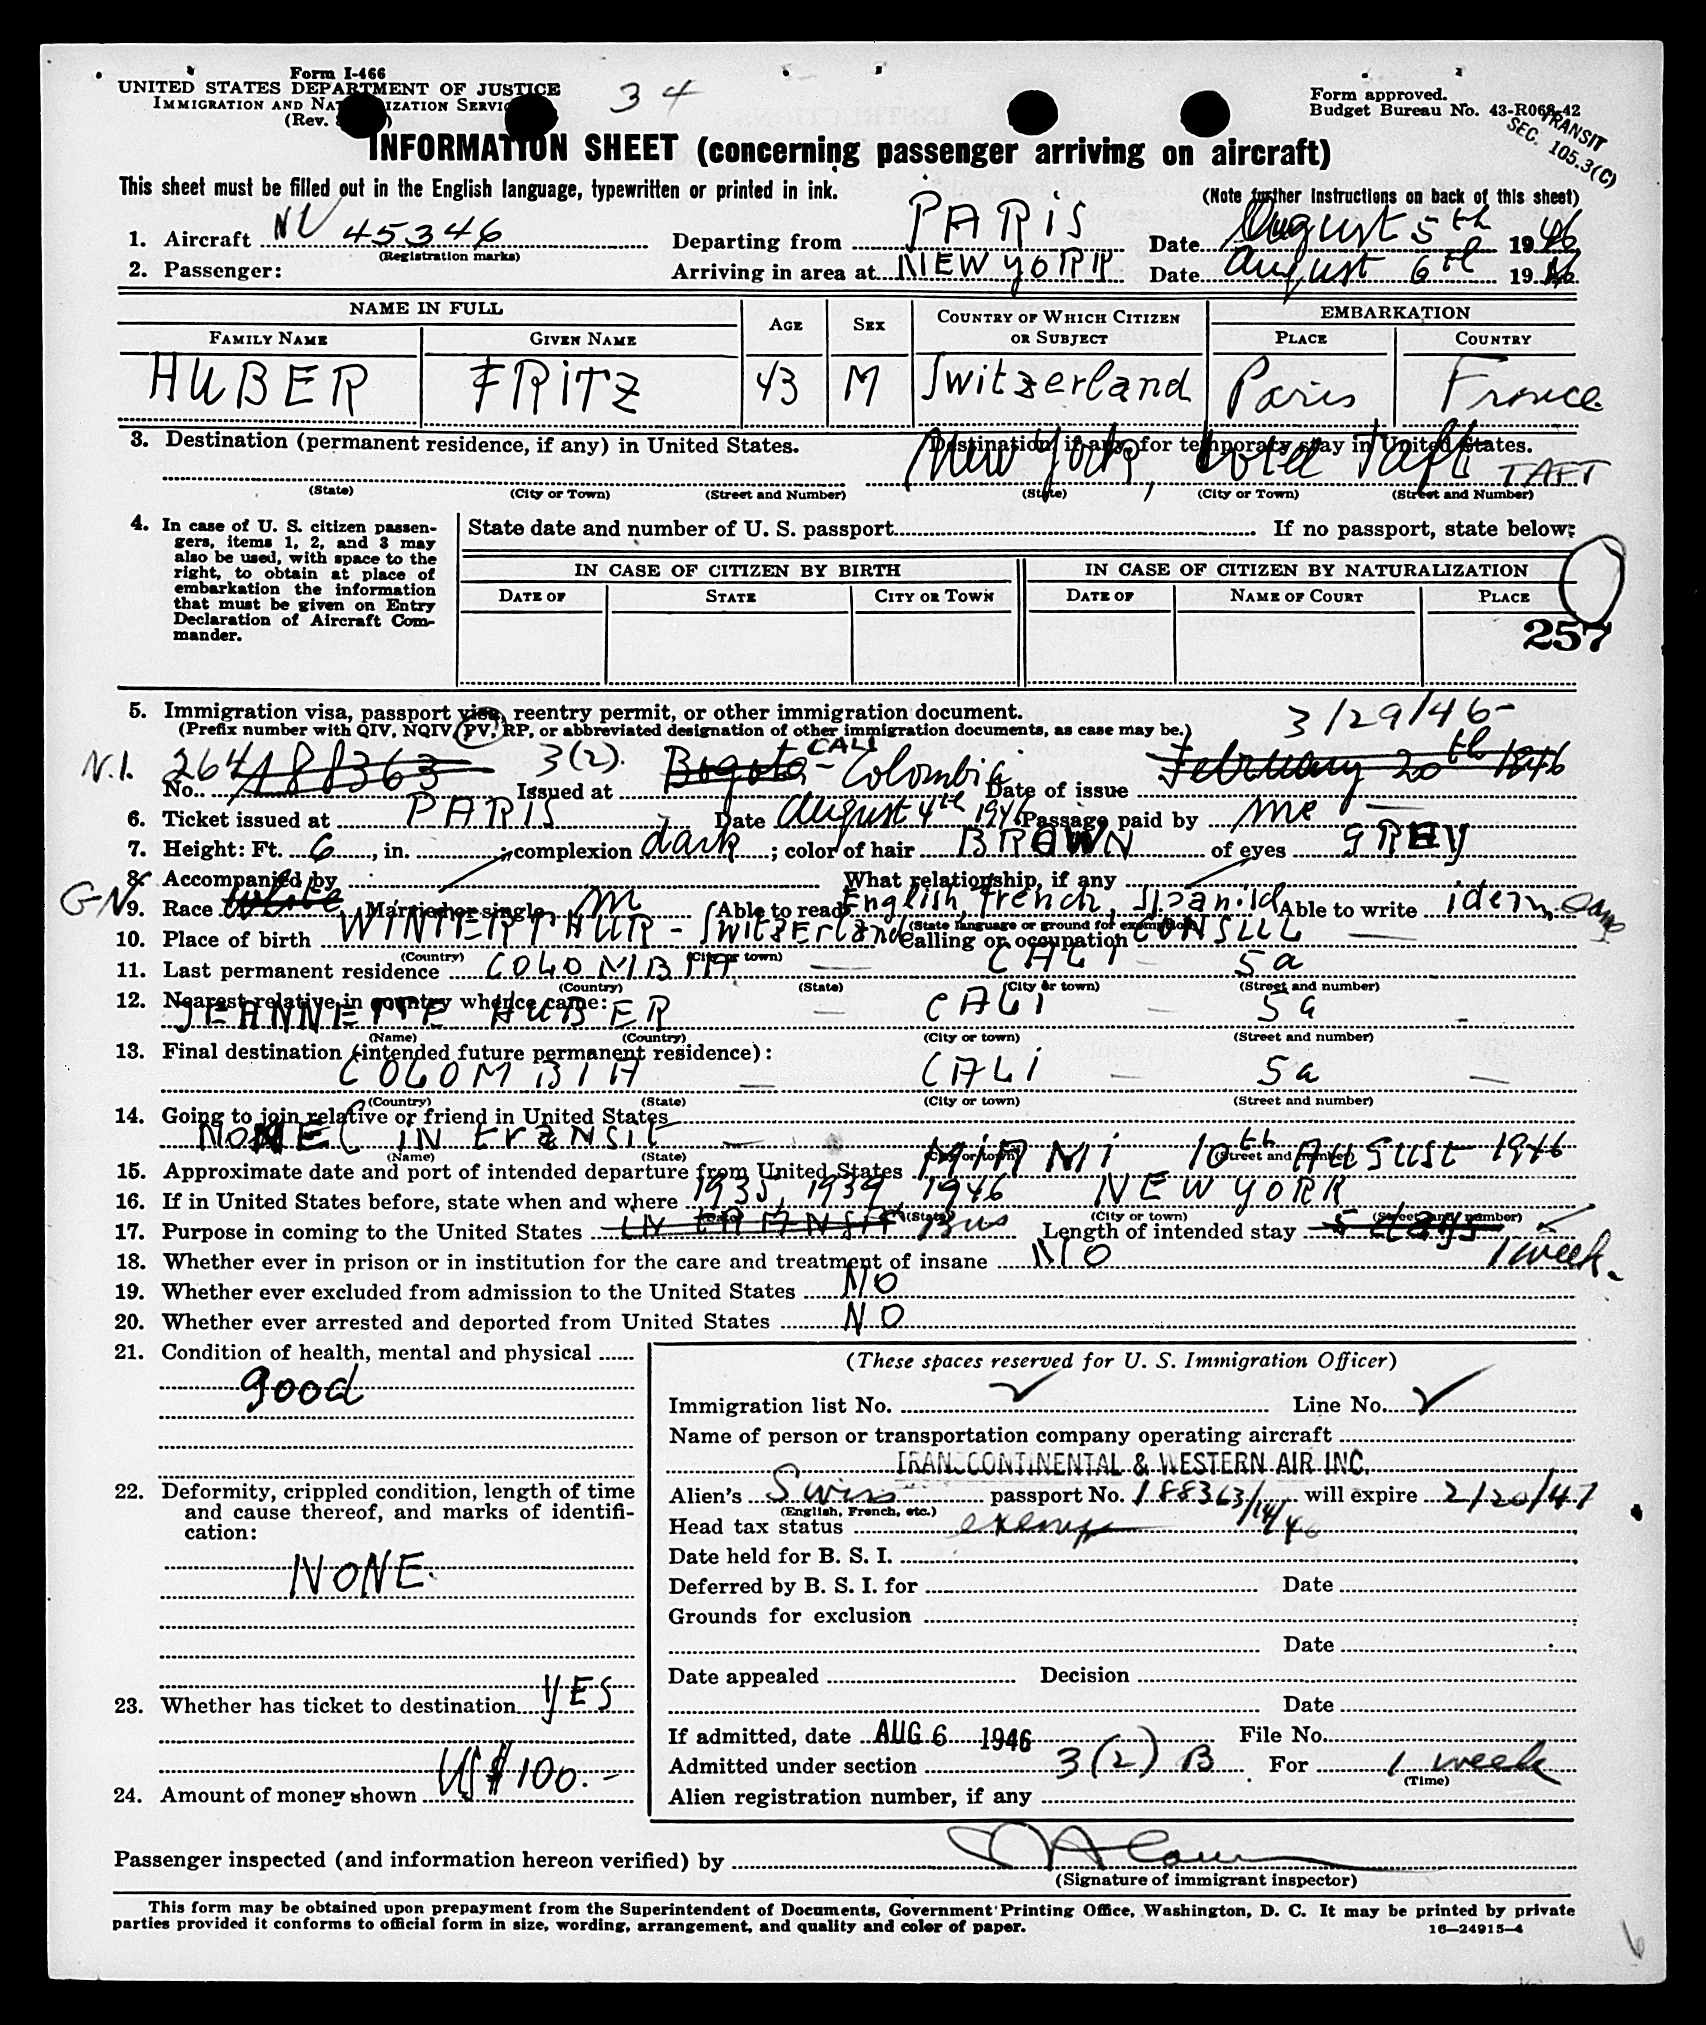 Form I-466
UNITED STATES DEPARTMENT OF JUSTICE
IMMIGRATION AND NATURALIZATION SERVICE
(Rev.
34
Form approved.
Budget Bureau No. 43-R068-42
TRANSIT
SEC. 105.3(C)
INFORMATION SHEET (concerning passenger arriving on aircraft)
This sheet must be filled out in the English language, typewritten or printed in ink.
(Note further instructions on back of this sheet)
1. Aircraft 45346 Departing from PARIS Date August 5th 1946
(Registration marks)
2. Passenger: Arriving in area at NEW YORK Date August 6th 1946
NAME IN FULL AGE SEX COUNTRY OF WHICH CITIZEN OR SUBJECT EMBARKATION
FAMILY NAME GIVEN NAME PLACE COUNTRY
HUBER FRITZ 43 M Switzerland Paris France
3. Destination (permanent residence, if any) in United States. Destination, if any, for temporary stay in United States.
New York, Hotel Taft TAFT
(State) (City or Town) (Street and Number) (State) (City or Town) (Street and Number)
4. In case of U. S. citizen passengers, items 1, 2, and 3 may also be used, with space to the right, to obtain at place of embarkation the information that must be given on Entry Declaration of Aircraft Commander.
State date and number of U. S. passport If no passport, state below:
IN CASE OF CITIZEN BY BIRTH IN CASE OF CITIZEN BY NATURALIZATION
DATE OF STATE CITY OR TOWN DATE OF NAME OF COURT PLACE
257
5. Immigration visa, passport visa, reentry permit, or other immigration document.
(Prefix number with QIV, NQIV, PV, RP, or abbreviated designation of other immigration documents, as case may be.)
3/29/46
N.I. No. 264 188363 3(2). Issued at Bogota - CALI Colombia Date of issue February 20th 1946
6. Ticket issued at PARIS Date August 4th 1946 Passage paid by me
7. Height: Ft. 6, in. ; complexion dark; color of hair BROWN of eyes GREY
8. Accompanied by What relationship, if any
G-N 9. Race White Married or single M Able to read English, French, Spanish Able to write idem same
(State language or ground for exemption)
10. Place of birth WINTERTHUR - Switzerland Calling or occupation CONSUL
(Country) (City or town)
11. Last permanent residence COLOMBIA CALI 5a
(Country) (State) (City or town) (Street and number)
12. Nearest relative in country whence came:
JEANNETTE HUBER CALI 5a
(Name) (Country) (City or town) (Street and number)
13. Final destination (intended future permanent residence):
COLOMBIA CALI 5a
(Country) (State) (City or town) (Street and number)
14. Going to join relative or friend in United States
NONE (in transit
(Name) (State) (City or town) (Street and number)
15. Approximate date and port of intended departure from United States MIAMI 10th August 1946
16. If in United States before, state when and where 1935, 1939, 1946 NEW YORK
(Date) (State) (City or town) (Street and number)
17. Purpose in coming to the United States IN TRANSIT Bus Length of intended stay 5 days
1 week.
18. Whether ever in prison or in institution for the care and treatment of insane NO
19. Whether ever excluded from admission to the United States NO
20. Whether ever arrested and deported from United States NO
21. Condition of health, mental and physical
good
22. Deformity, crippled condition, length of time and cause thereof, and marks of identification:
NONE.
23. Whether has ticket to destination YES
24. Amount of money shown US $ 100.-
(These spaces reserved for U. S. Immigration Officer)
Immigration list No. Line No.
Name of person or transportation company operating aircraft
TRANSCONTINENTAL & WESTERN AIR INC.
Alien's Swiss passport No. 188363 will expire 2/20/47
(English, French, etc.)
Head tax status exempt
Date held for B. S. I.
Deferred by B. S. I. for Date
Grounds for exclusion
Date
Date appealed Decision
Date
If admitted, date AUG 6 1946 File No.
Admitted under section 3(2) B For 1 week
(Time)
Alien registration number, if any
Passenger inspected (and information hereon verified) by
(Signature of immigrant inspector)
This form may be obtained upon prepayment from the Superintendent of Documents, Government Printing Office, Washington, D. C. It may be printed by private
parties provided it conforms to official form in size, wording, arrangement, and quality and color of paper.
16—24915-4